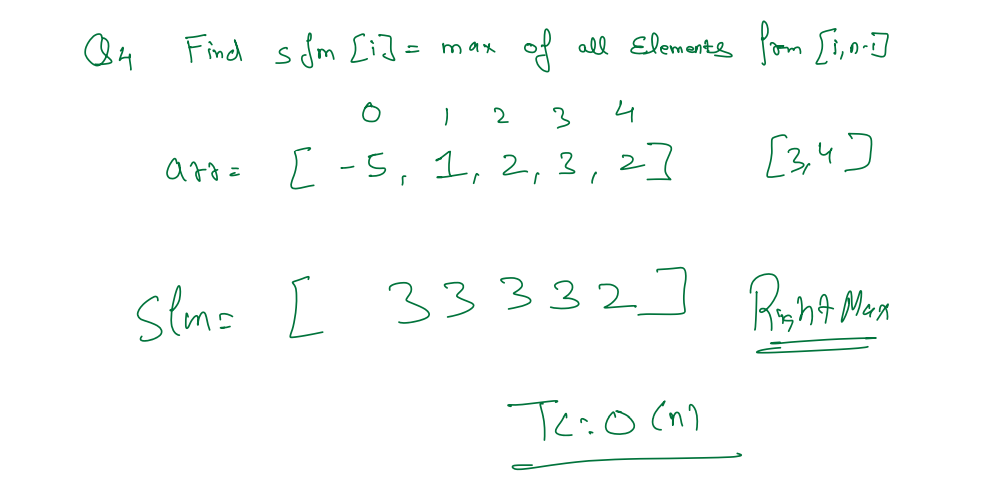 Q4 Find sfm [i] = max of all Elements from [i, n-1]
0 1 2 3 4
arr = [ -5, 1, 2, 3, 2 ] [3,4]
Sfm = [ 3 3 3 3 2 ] Right Max
TC: O(n)